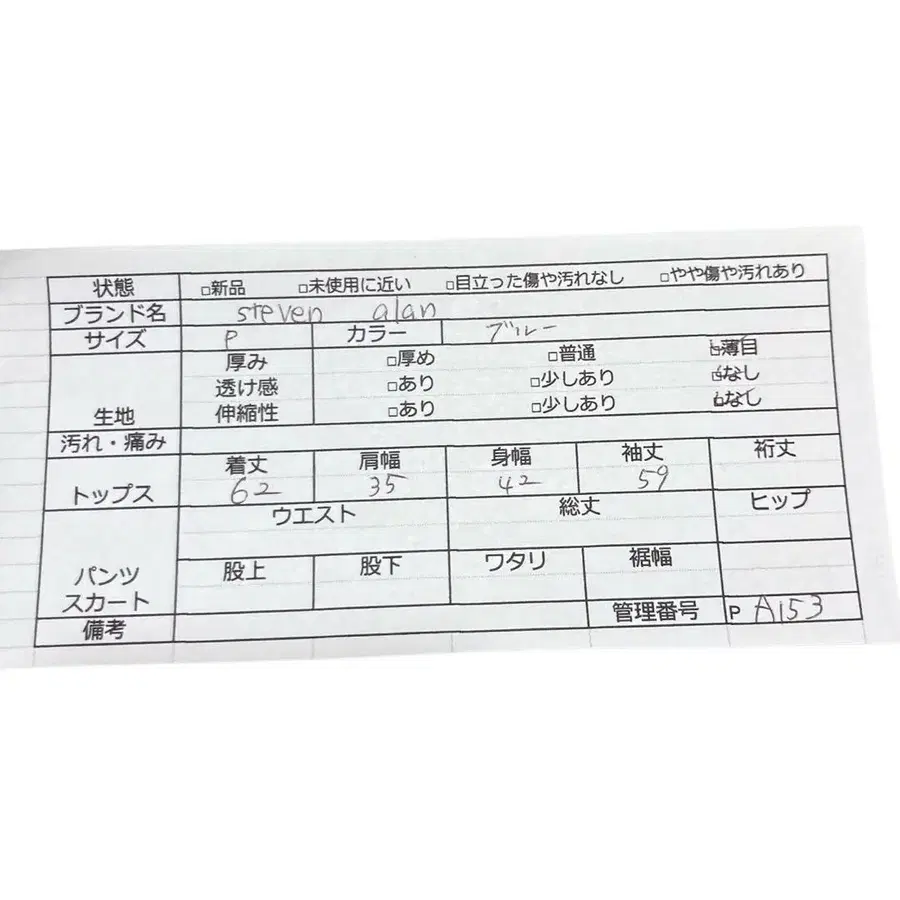 状態 □新品 □未使用に近い □目立った傷や汚れなし □やや傷や汚れあり
ブランド名 steven alan
サイズ P カラー ブルー
厚み □厚め □普通 □薄目
透け感 □あり □少しあり □なし
生地 伸縮性 □あり □少しあり □なし
汚れ・痛み
着丈 肩幅 身幅 袖丈 裄丈
トップス 62 35 42 59
ウエスト 総丈 ヒップ
股上 股下 ワタリ 裾幅
パンツ
スカート
備考 管理番号 P A153